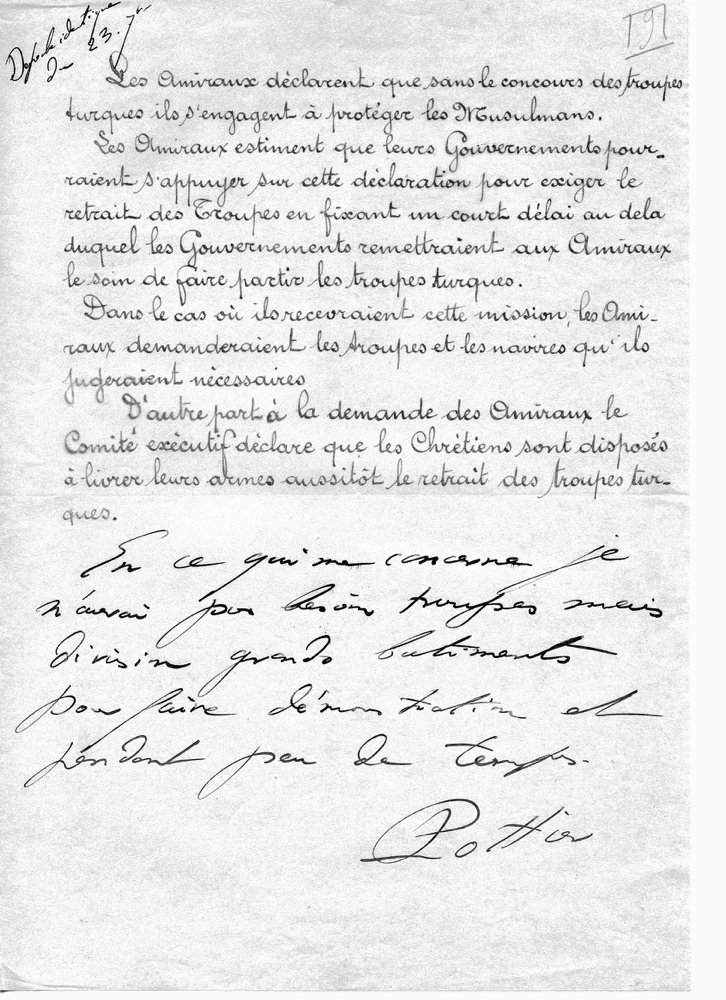 Dépêche identique
du 23. 7bre
191
Les Amiraux déclarent que sans le concours des troupes
turques ils s'engagent à protéger les Musulmans.
Les Amiraux estiment que leurs Gouvernements pour-
raient s'appuyer sur cette déclaration pour exiger le
retrait des Troupes en fixant un court délai au dela
duquel les Gouvernements remettraient aux Amiraux
le soin de faire partir les troupes turques.
Dans le cas où ils recevraient cette mission, les Ami-
raux demanderaient les troupes et les navires qu'ils
jugeraient nécessaires
D'autre part à la demande des Amiraux le
Comité exécutif déclare que les Chrétiens sont disposés
à livrer leurs armes aussitôt le retrait des troupes tur-
ques.
En ce qui me concerne je
n'aurai pas besoin troupes mais
division grands batiments
pour faire démonstration et
pendant peu de temps.
Pottier